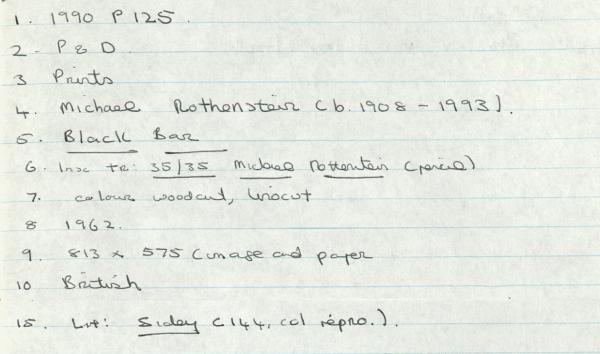 1. 1990 P 125.
2. P & D
3 Prints
4. Michael Rothenstein (b. 1908 - 1993).
5. Black Bar
6. Insc tr: 35/35 Michael Rothenstein (pencil)
7. colour woodcut, linocut
8 1962.
9. 813 x 575 (image and paper
10 British
15. Lit: Sidey (144, col repro.).